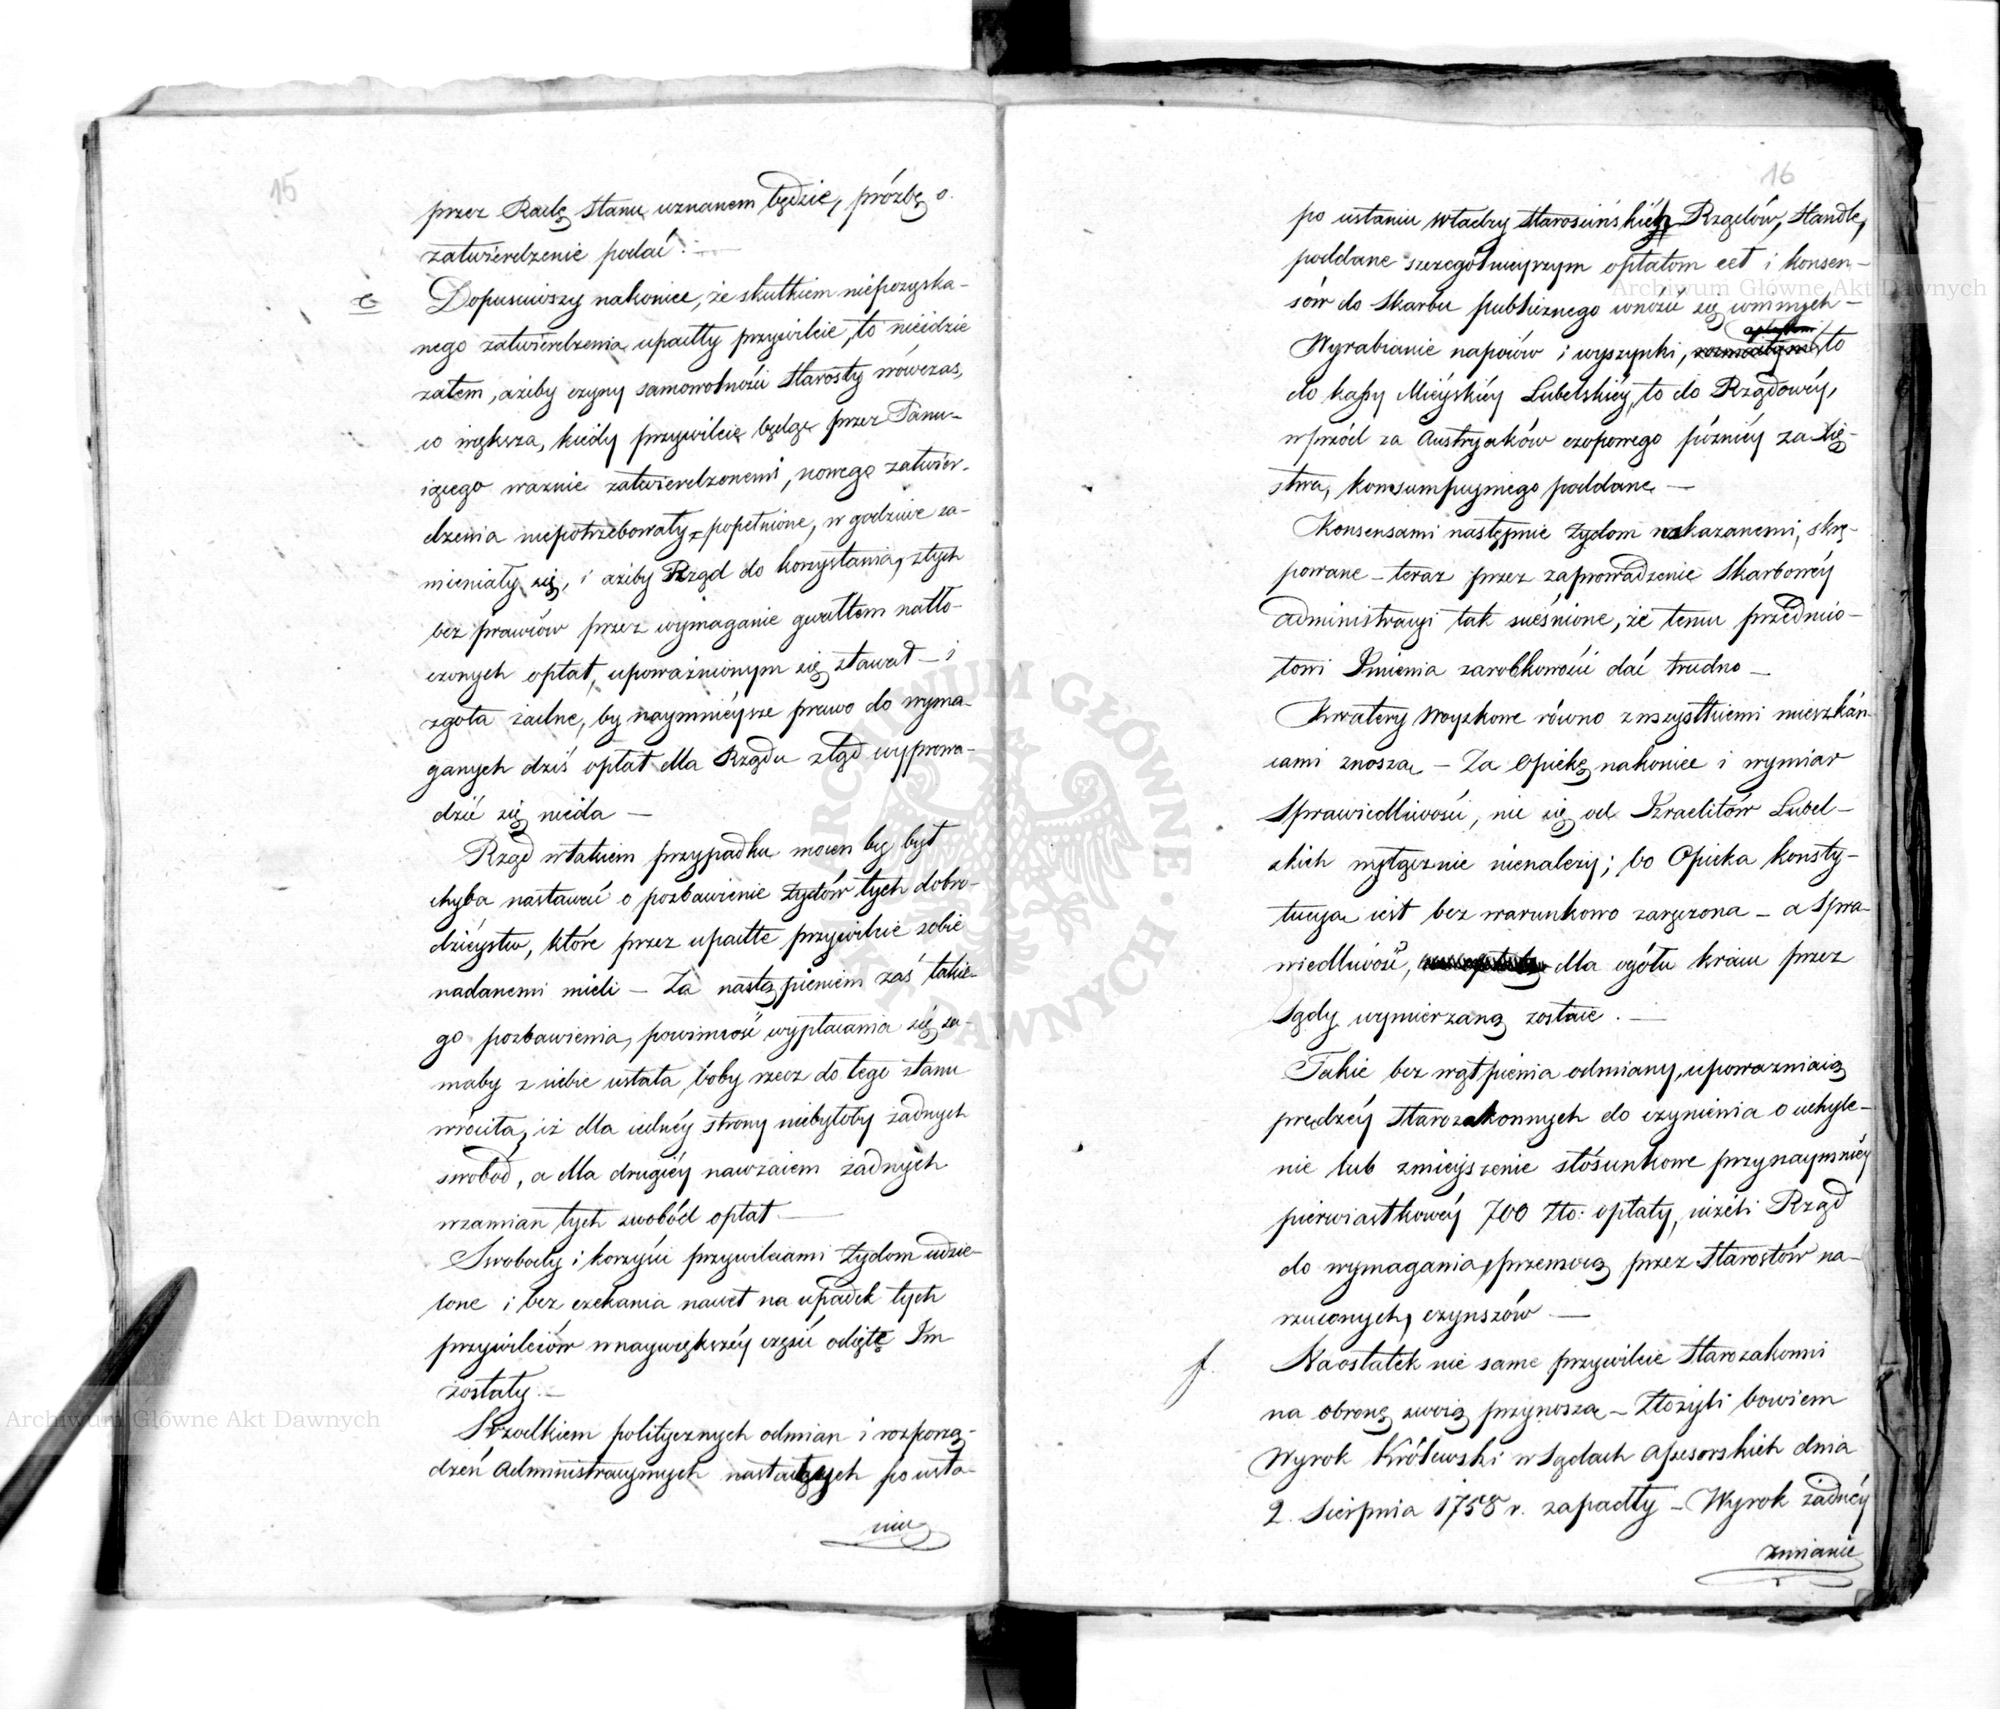 15
przez Radę Stanu uznanem będzie, próżbę o
zatwierdzenie podać. —
e Dopuściwszy nakoniec, że skutkiem niepozyska-
nego zatwierdzenia upadły przywileie, to nieidzie
zatem, ażeby czyny samowolności Starosty wówczas,
co większa, kiedy przywileie będąc przez Panu-
iącego ważnie zatwierdzonemi, nowego zatwier-
dzenia niepotrzebowały popełnione, w godziwe za-
mieniały się, i ażeby Rząd do korzystania, z tych
bez prawiów przez wymaganie gwałtem natło-
czonych opłat, upoważnionym się stawał — i
zgoła żadne, by naymnieysze prawo do wyma-
ganych dziś opłat dla Rządu ztąd wyprowa-
dzić się nieda —
Rząd w takiem przypadku mocen by był
chyba nastawać o pozbawienie Żydów tych dobro-
dzieystw, które przez upadłe przywileie sobie
nadanemi mieli — Za nastąpieniem zaś takie-
go pozbawienia, powinność wypłacania się sa-
maby z siebie ustała, boby rzecz do tego stanu
wróciła, iż dla iednéy strony niebyłoby żadnych
swobód, a dla drugiéy nawzaiem żadnych
wzamian tych swobód opłat —
Swobody i korzyści przywileiami Żydom udzie-
lone i bez czekania nawet na upadek tych
przywileiów w naywiększéy części odięte Im
zostały. —
Srzodkiem politycznych odmian i rozporzą-
dzeń Administracyinych nastałych po usta-
niu
16
po ustaniu władzy Starościńskiéy Rządów, Handle,
poddane szczegółnieyszym opłatom cet i konsen-
sów do Skarbu publicznego wnosić się winnych —
Wyrabianie napoiów i wyszynki, to
do kassy Mieyskiéy Lubelskiéy, to do Rządowéy,
wprzód za Austryaków czopowego późniéy za Xię-
stwa, konsumpcyinego poddane —
Konsensami następnie Żydom wskazanemi, skrę-
powane — teraz przez zaprowadzenie Skarbowéy
Administracyi tak sucieśnione, że temu przedmio-
towi Imienia zarobkowości dać trudno —
Kwatery Woyskowe równo z wszystkiemi mieszkań-
cami znoszą — Za Opiekę nakoniec i wymiar
Sprawiedliwości, nic się od Izraelitów Lubel-
skich wyłącznie nienależy; bo Opieka konsty-
tucyą iest bez warunkowo zaręczona — a Spra-
wiedliwość, dla ogółu kraiu przez
Sądy wymierzaną zostaie. —
Takie bez wątpienia odmiany, upoważniaią
prędzéy Starozakonnych do czynienia o uchyle-
nie lub zmieyszenie stósunkowe przynaymniéy
pierwiastkowéy 700 Złto: opłaty, niżeli Rząd
do wymagania, przemocą przez Starostów na-
rzuconych, czynszów —
f. Naostatek nie same przywileie Starozakonni
na obronę swoią przynoszą — Złożyli bowiem
Wyrok Królewski w Sądach Assesorskich dnia
2. Sierpnia 1758 r. zapadły — Wyrok żadnéy
zmianie